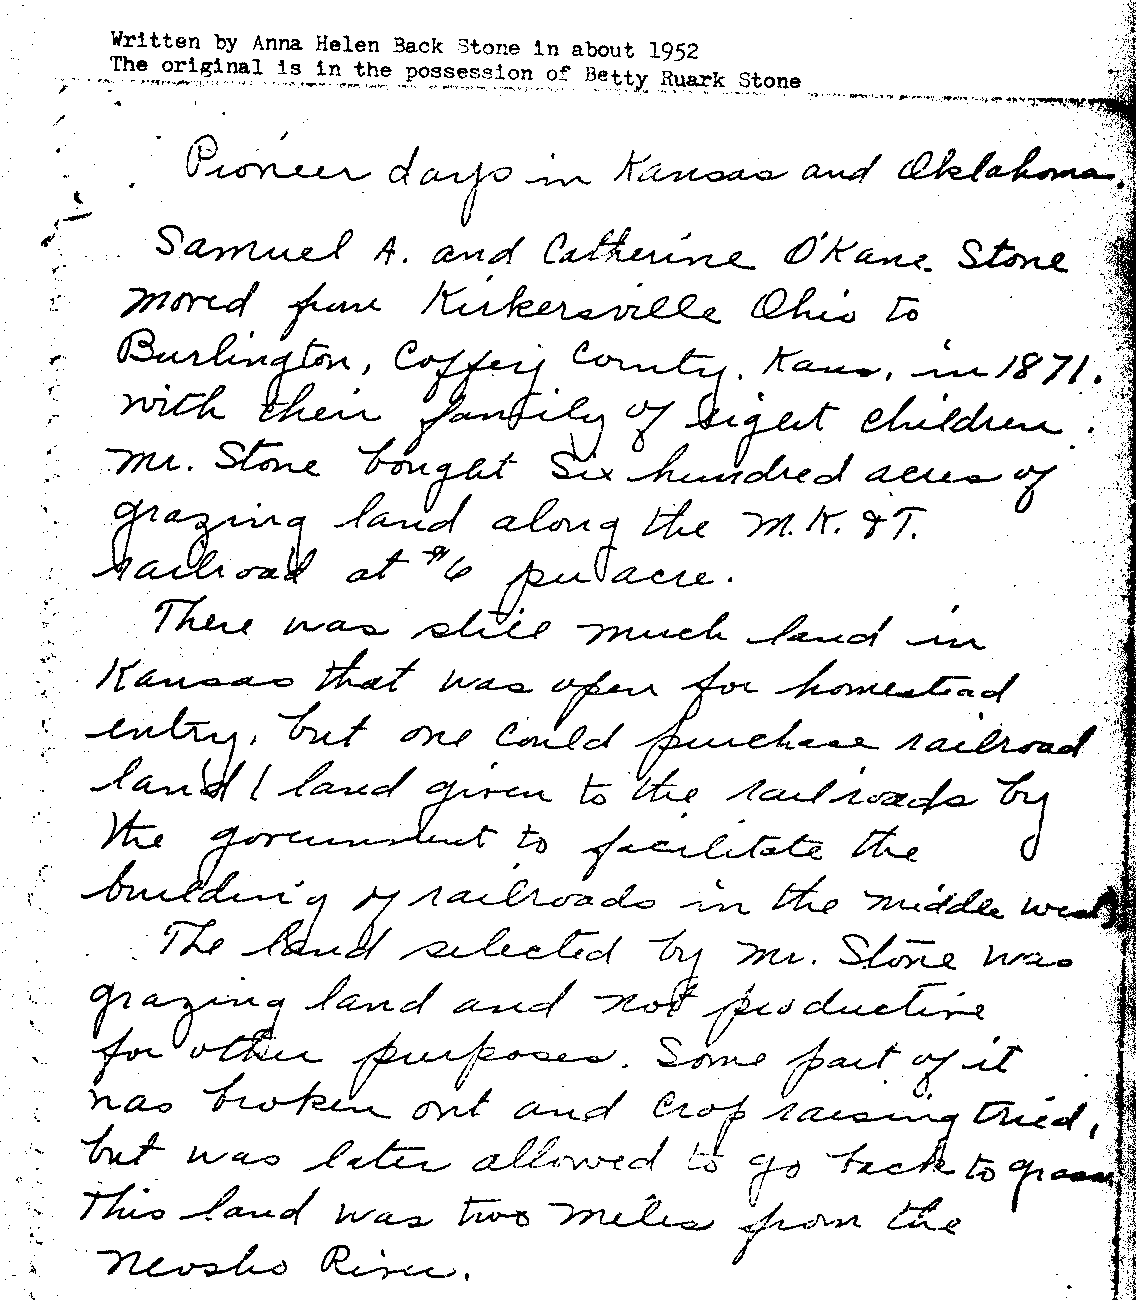 Written by Anna Helen Back Stone in about 1952
The original is in the possession of Betty Ruark Stone
Pioneer days in Kansas and Oklahoma.
Samuel A. and Catherine O'Kane Stone
moved from Kirkersville Ohio to
Burlington, Coffey County, Kans, in 1871.
with their family of eight children.
Mr. Stone bought six hundred acres of
grazing land along the M.K. & T.
railroad at $6 per acre.
There was still much land in
Kansas that was open for homestead
entry, but one could purchase railroad
land ( land given to the railroads by
the government to facilitate the
building of railroads in the middle west)
The land selected by Mr. Stone was
grazing land and not productive
for other purposes. Some part of it
was broken out and crop raising tried,
but was later allowed to go back to grass
This land was two miles from the
Neosho River.